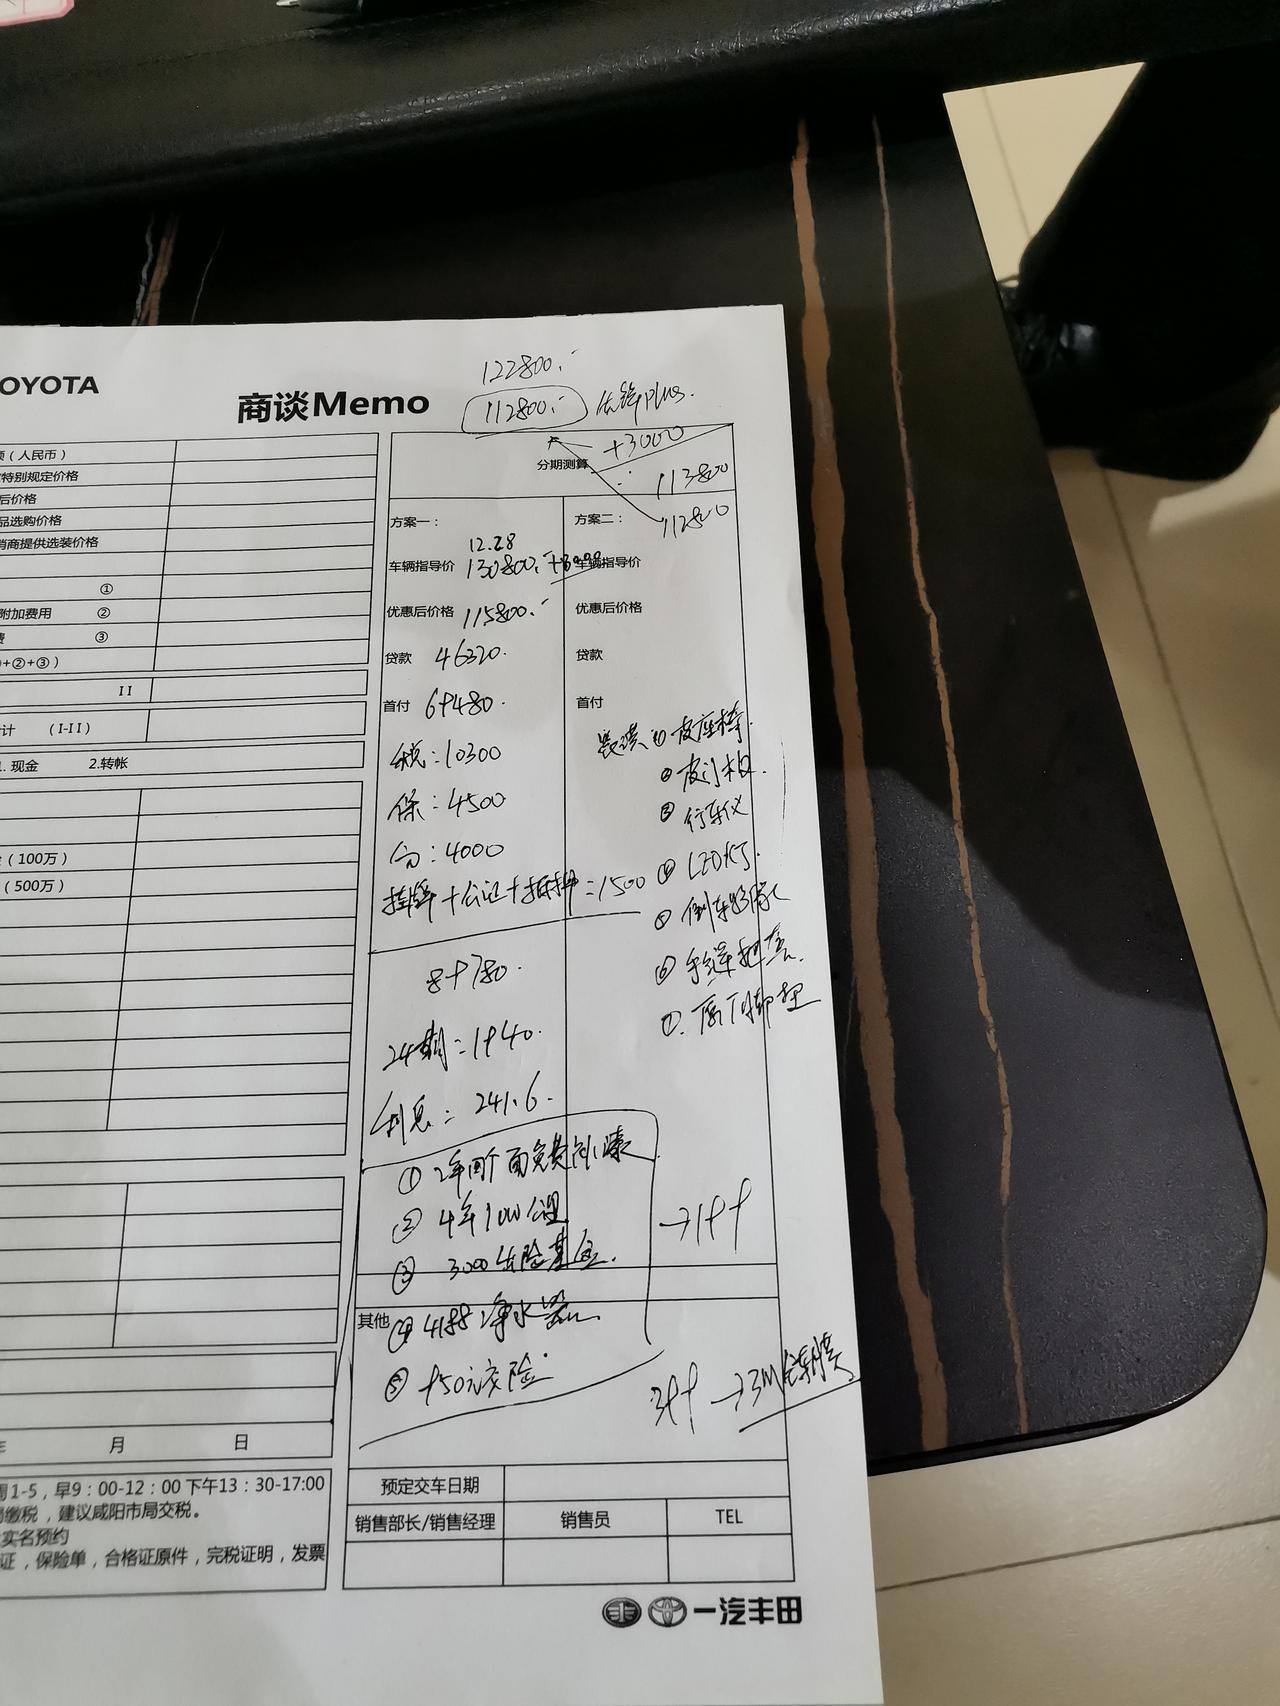 OYOTA
商谈Memo
122800.-
112800.-
plus.
（人民币）
特别规定价格
后价格
品选购价格
销商提供选装价格
①
附加费用 ②
费 ③
+②+③）
II
计 （I-II）
1. 现金 2.转帐
（100万）
（500万）
月 日
周1-5，早9：00-12：00 下午13：30-17:00
缴税，建议咸阳市局交税。
实名预约
证，保险单，合格证原件，完税证明，发票
分期测算
+3000
113800
112800
方案一：
方案二：
12.28
车辆指导价 130800.-
车辆指导价
优惠后价格 115800.-
优惠后价格
贷款 46320.
贷款
首付 69480.
首付
税：10300
保：4500
4000
挂牌+公证+抵押：1500
89780.
24期：1940.
利息：241.6.
① 皮座椅.
②
③ 行车仪
④ LED灯.
⑤ 倒车影像
⑥ 手缝把套.
⑦.
① 2年4个面免费补漆
② 4年 公里
③ 3000出险基金.
其他
④ 净水器.
⑤ 950元交险
→199
399 →3M全车膜
预定交车日期
销售部长/销售经理
销售员
TEL
一汽丰田